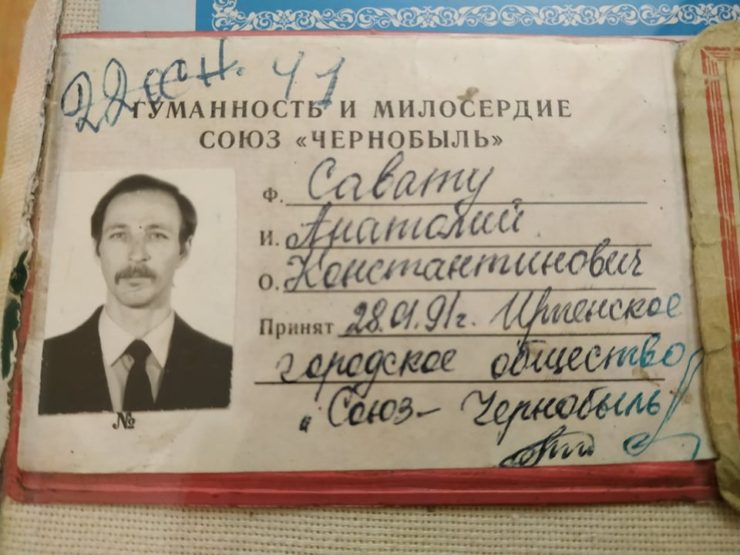 ГУМАННОСТЬ И МИЛОСЕРДИЕ
СОЮЗ «ЧЕРНОБЫЛЬ»
Ф. Савату
И. Анатолий
О. Константинович
Принят 28.01.91г. Ирпенское
городское общество
"Союз- Чернобыль
№